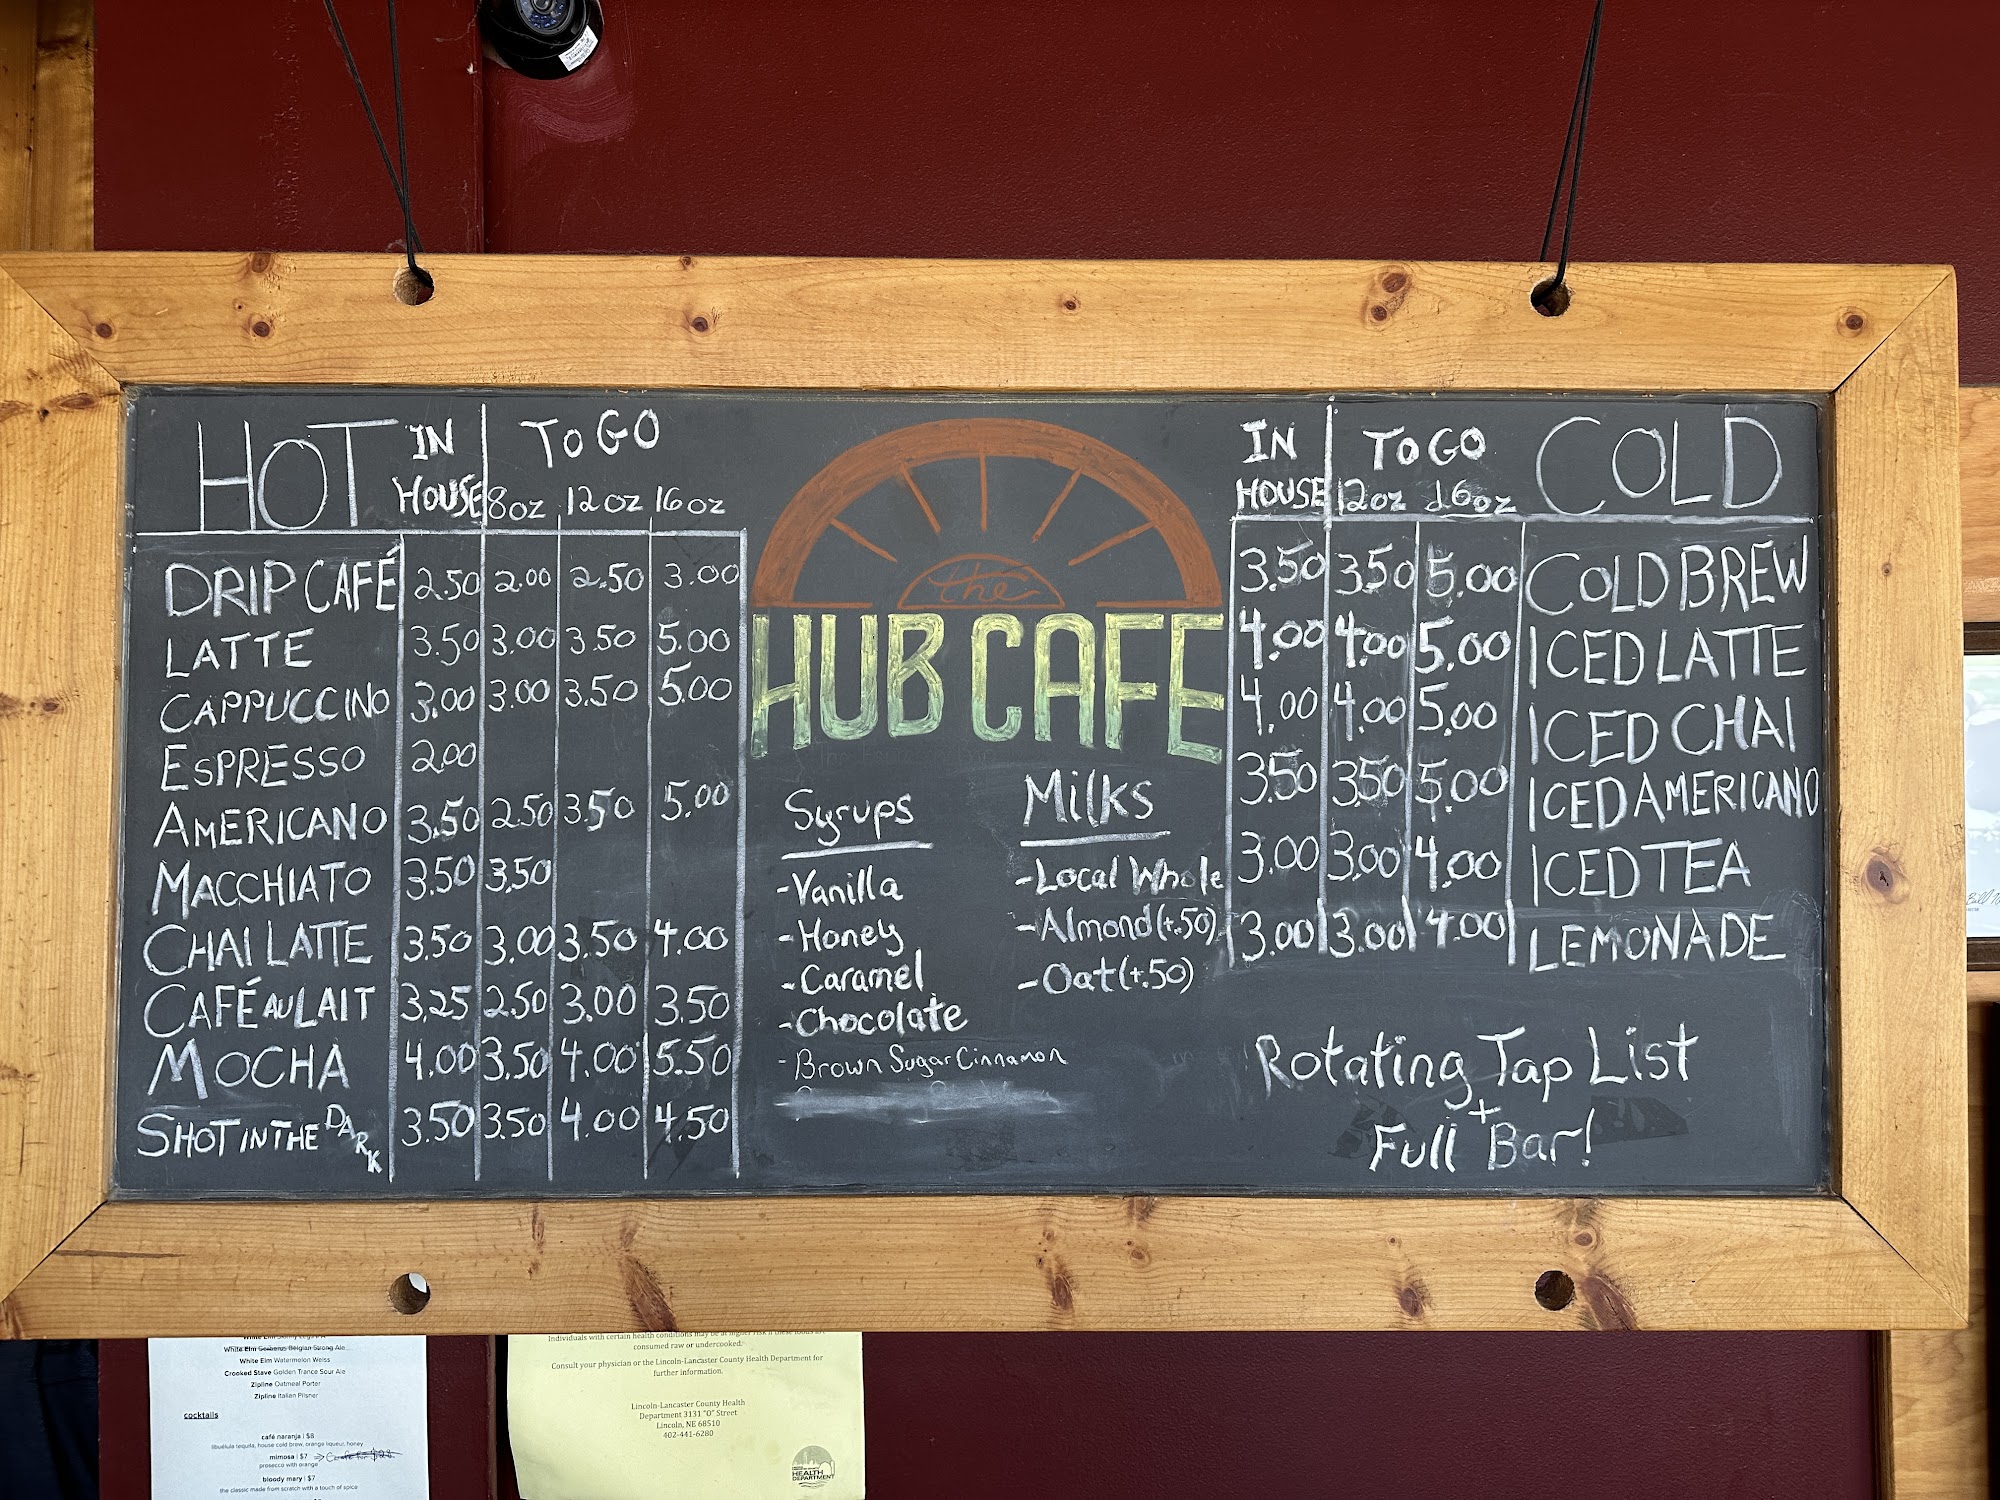 HOT IN HOUSE TO GO
8oz 12oz 16oz
DRIP CAFÉ 2.50 2.00 2.50 3.00
LATTE 3.50 3.00 3.50 5.00
CAPPUCCINO 3.00 3.00 3.50 5.00
ESPRESSO 2.00
AMERICANO 3.50 2.50 3.50 5.00
MACCHIATO 3.50 3.50
CHAI LATTE 3.50 3.00 3.50 4.00
CAFÉ AU LAIT 3.25 2.50 3.00 3.50
MOCHA 4.00 3.50 4.00 5.50
SHOT IN THE DARK 3.50 3.50 4.00 4.50
the
HUB CAFE
Syrups
-Vanilla
-Honey
-Caramel
-Chocolate
-Brown Sugar Cinnamon
Milks
-Local Whole
-Almond (+.50)
-Oat (+.50)
IN HOUSE TO GO COLD
12oz 16oz
3.50 3.50 5.00 COLD BREW
4.00 4.00 5.00 ICED LATTE
4.00 4.00 5.00 ICED CHAI
3.50 3.50 5.00 ICED AMERICANO
3.00 3.00 4.00 ICED TEA
3.00 3.00 4.00 LEMONADE
Rotating Tap List
+
Full Bar!
White Elm Gerberus Belgian Strong Ale
White Elm Watermelon Weiss
Crooked Stave Golden Trance Sour Ale
Zipline Oatmeal Porter
Zipline Italian Pilsner
cocktails
café naranja | $8
libuélula tequila, house cold brew, orange liqueur, honey
mimosa | $7
prosecco with orange
bloody mary | $7
the classic made from scratch with a touch of spice
Individuals with certain health conditions may be at higher risk if these foods are
consumed raw or undercooked.
Consult your physician or the Lincoln-Lancaster County Health Department for
further information.
Lincoln-Lancaster County Health
Department 3131 "O" Street
Lincoln, NE 68510
402-441-6280
HEALTH
DEPARTMENT